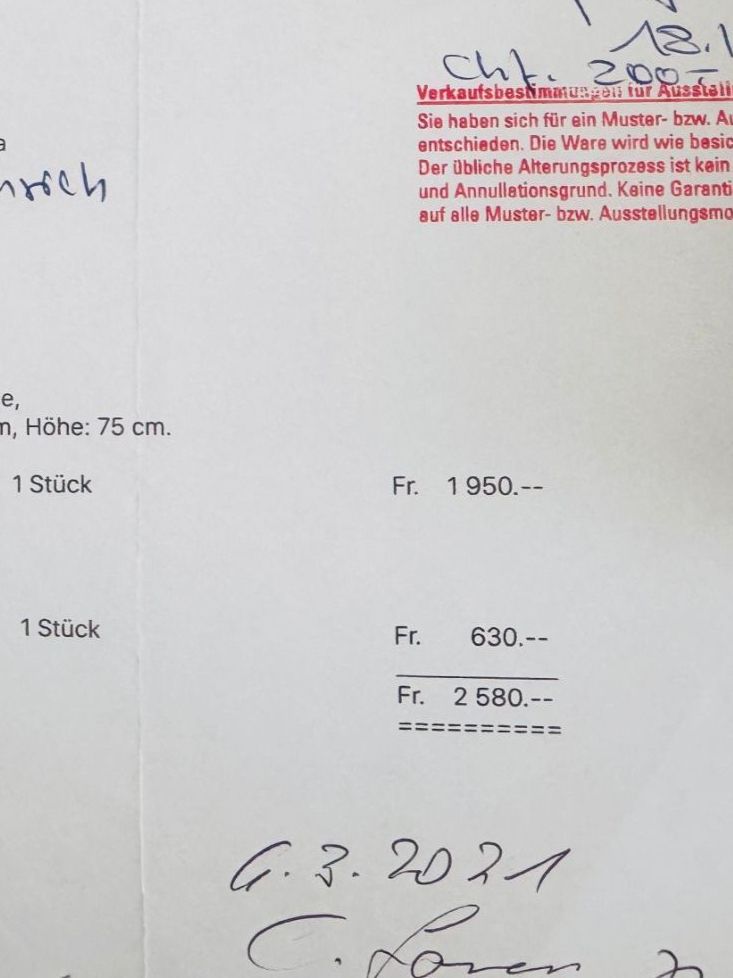 18.1
Chf. 200.-
Verkaufsbestimmungen für Ausstell
Sie haben sich für ein Muster- bzw. Au
entschieden. Die Ware wird wie besic
Der übliche Alterungsprozess ist kein
und Annullationsgrund. Keine Garanti
auf alle Muster- bzw. Ausstellungsmo
e,
m, Höhe: 75 cm.
1 Stück Fr. 1 950.--
1 Stück Fr. 630.--
Fr. 2 580.--
==========
6.3.2021
C.